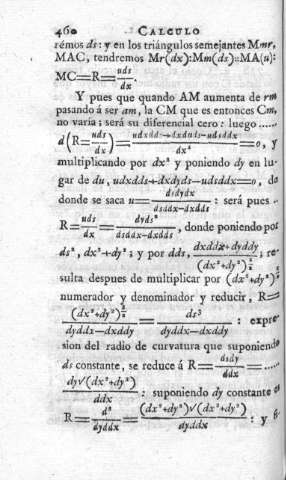 460 CALCULO
rémos ds: y en los triángulos semejantes Mmr,
MAC, tendremos Mr(dx):Mm(ds)::MA(u):
MC=R=uds/dx.
Y pues que quando AM aumenta de rm
pasando á ser am, la CM que es entonces Cm,
no varia; será su diferencial cero: luego .....
d(R=uds/dx)=(udxdds+dxduds-udsddx)/dx²=0, y
multiplicando por dx² y poniendo dy en lu-
gar de du, udxdds+dxdyds-udsddx=0, de
donde se saca u=dsdydx/(dsddx-dxdds): será pues
R=uds/dx=dyds²/(dsddx-dxdds), donde poniendo por
ds², dx²+dy²; y por dds, (dxddx+dyddy)/(dx²+dy²)^½; re-
sulta despues de multiplicar por (dx²+dy²)^½
numerador y denominador y reducir, R=
(dx²+dy²)^3/2/(dyddx-dxddy)=ds³/(dyddx-dxddy): expre-
sion del radio de curvatura que suponiendo
ds constante, se reduce á R=dsdy/ddx=.....
dy√(dx²+dy²)/ddx: suponiendo dy constante es
R=d³/dyddx=(dx²+dy²)√(dx²+dy²)/dyddx: y